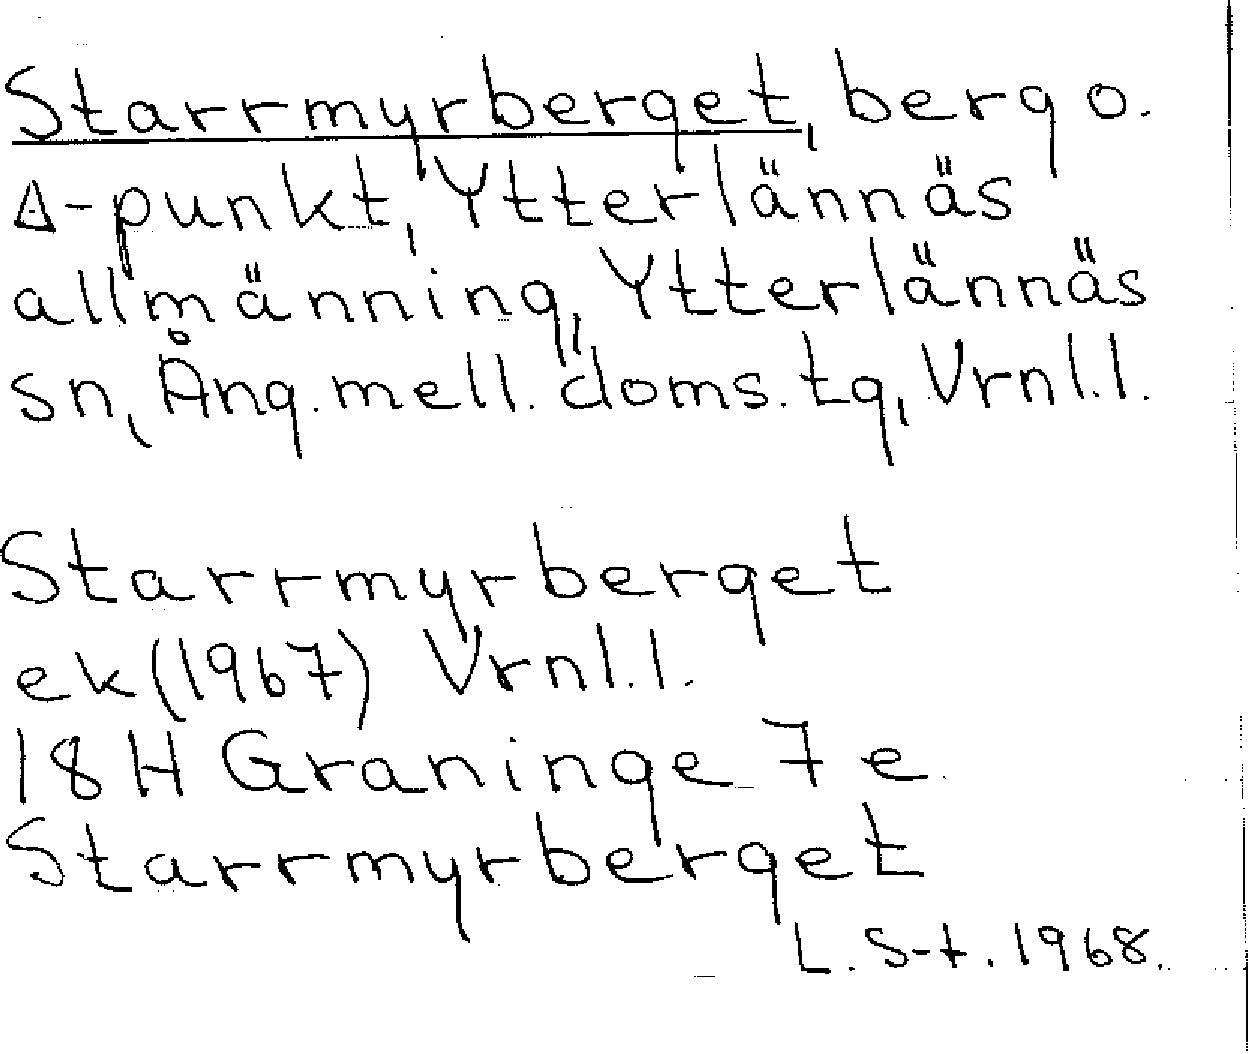 Starrmyrberget, berg o.
Δ-punkt, Ytterlännäs
allmänning, Ytterlännäs
sn, Ång. mell. doms. tg, Vrnl.l.
Starrmyrberget
ek (1967) Vrnl.l.
18H Graninge 7e
Starrmyrberget
L. S-t. 1968.